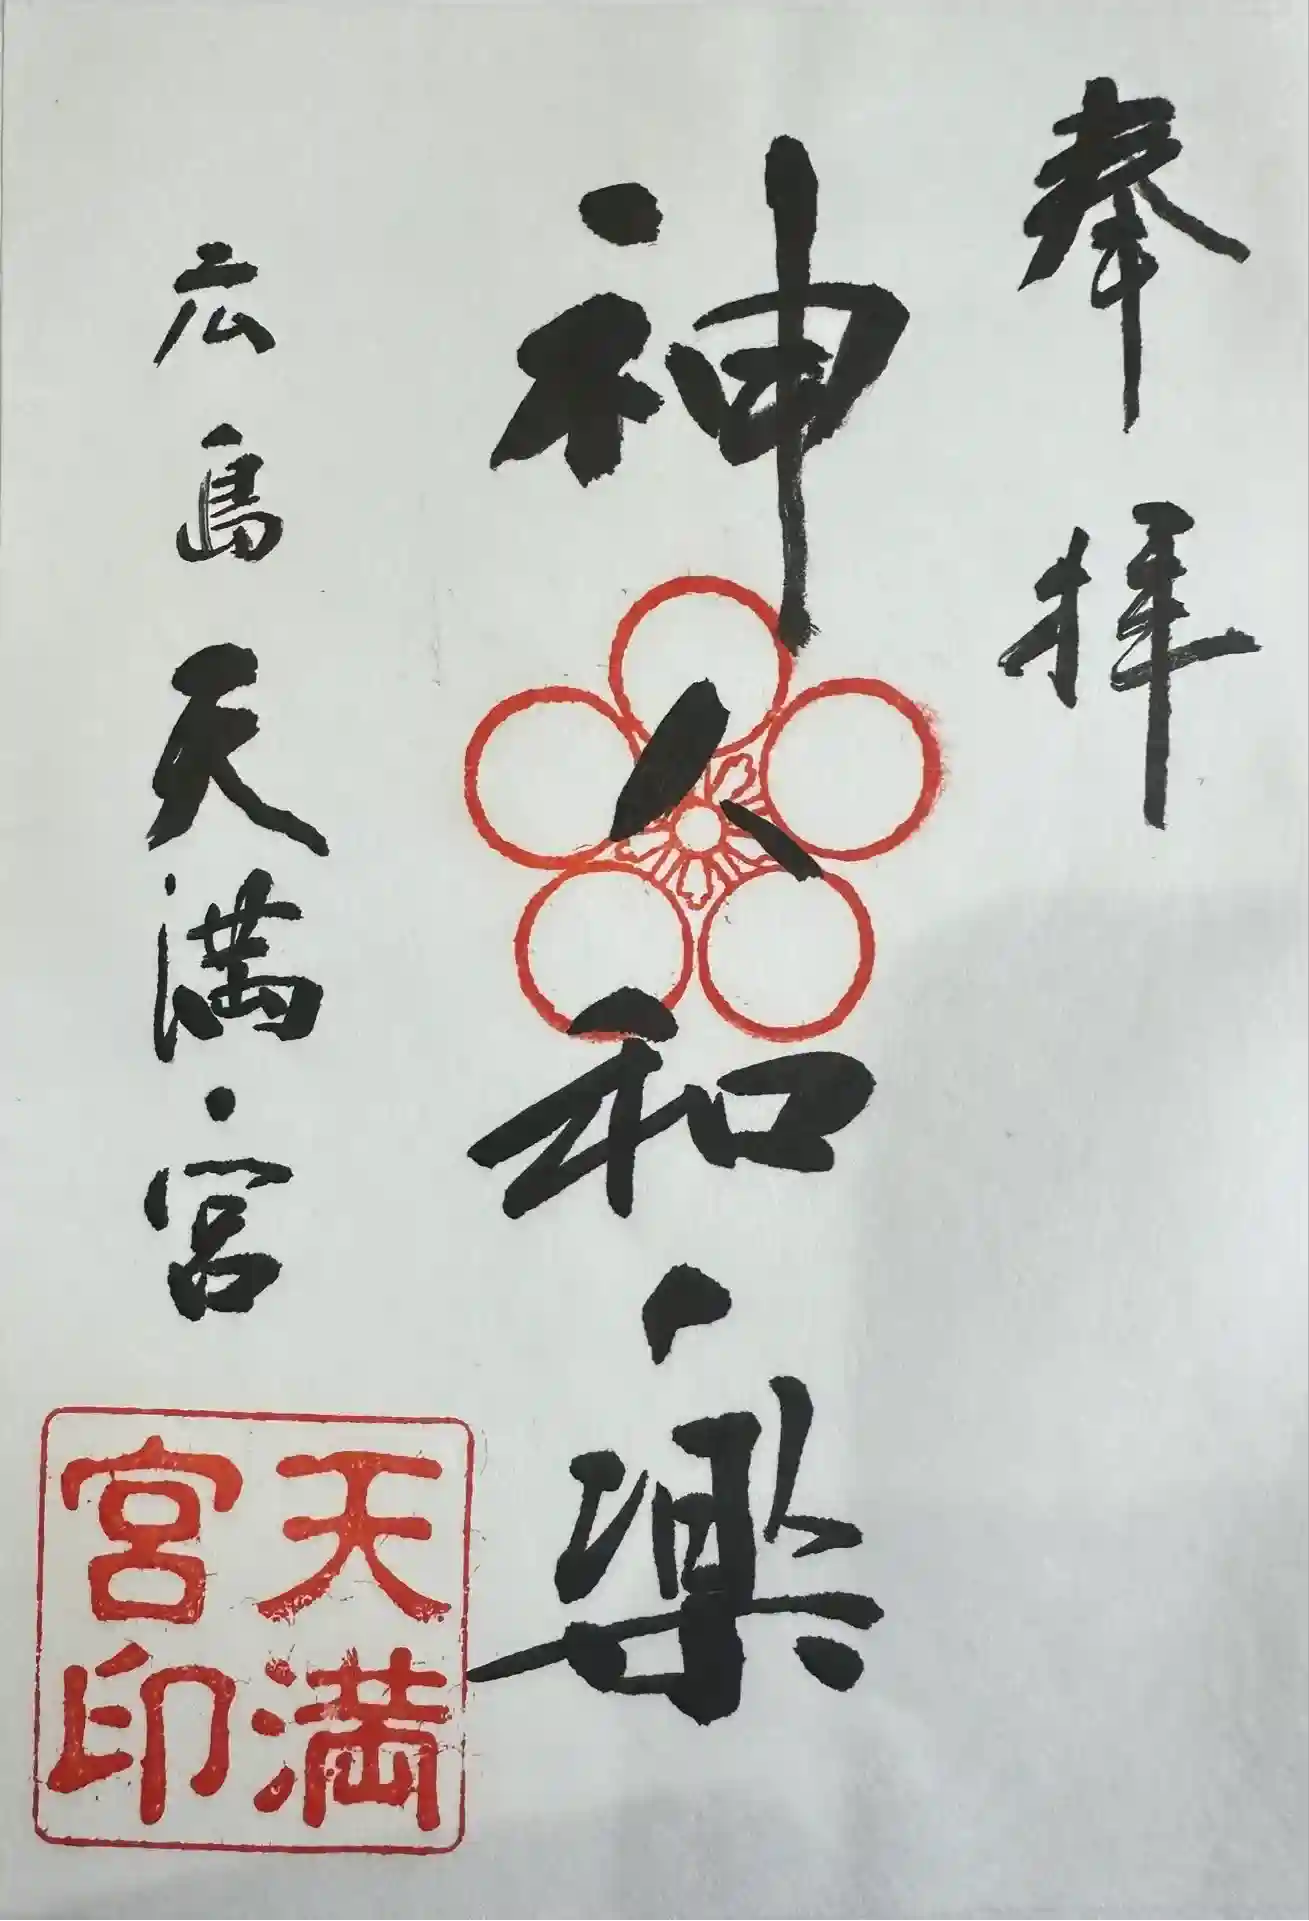 奉拝
神人和楽
広島天満宮
天満宮印